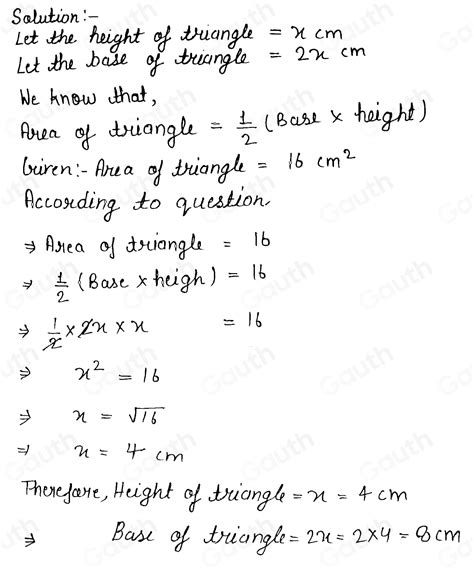 Solution:-
Let the height of triangle = x cm
Let the base of triangle = 2x cm
We know that,
Area of triangle = 1/2 (Base × height)
Given:- Area of triangle = 16 cm²
According to question
⇒ Area of triangle = 16
⇒ 1/2 (Base × heigh) = 16
⇒ 1/2 × 2x × x = 16
⇒ x² = 16
⇒ x = √16
⇒ x = 4 cm
Therefore, Height of triangle = x = 4 cm
⇒ Base of triangle = 2x = 2×4 = 8 cm